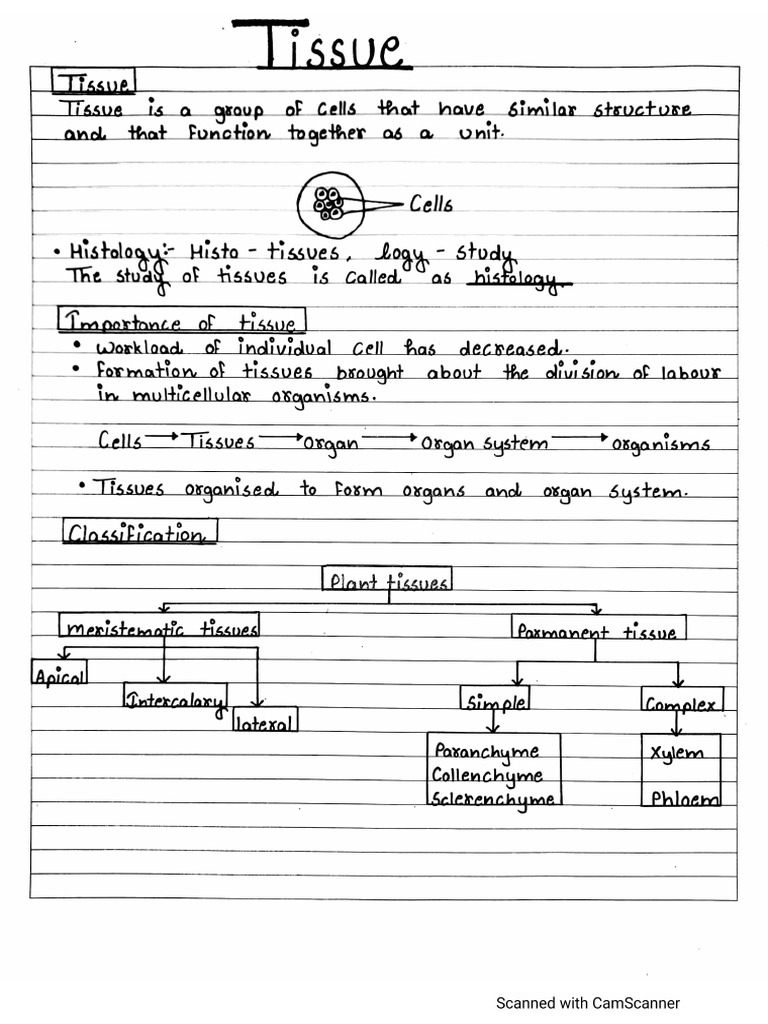 Tissue
Tissue
Tissue is a group of cells that have similar structure
and that function together as a unit.
Cells
• Histology:- Histo - tissues, logy - study
The study of tissues is called as histology.
Importance of tissue
• Workload of individual cell has decreased.
• formation of tissues brought about the division of labour
in multicellular organisms.
Cells → Tissues → Organ → Organ system → organisms
• Tissues organised to form organs and organ system.
Classification
Plant tissues
Meristematic tissues Parmanent tissue
Apical
Intercalary
lateral
Simple Complex
Paranchyme Xylem
Collenchyme
Sclerenchyme Phloem
Scanned with CamScanner